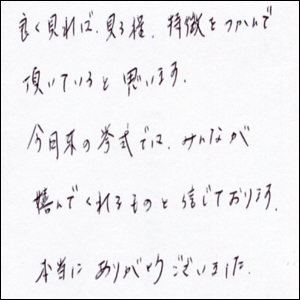 良く見れば、見る程、特徴をつかんで
頂いていると思います。
今月末の挙式では、みんなが
喜んでくれるものと信じております。
本当にありがとうございました。